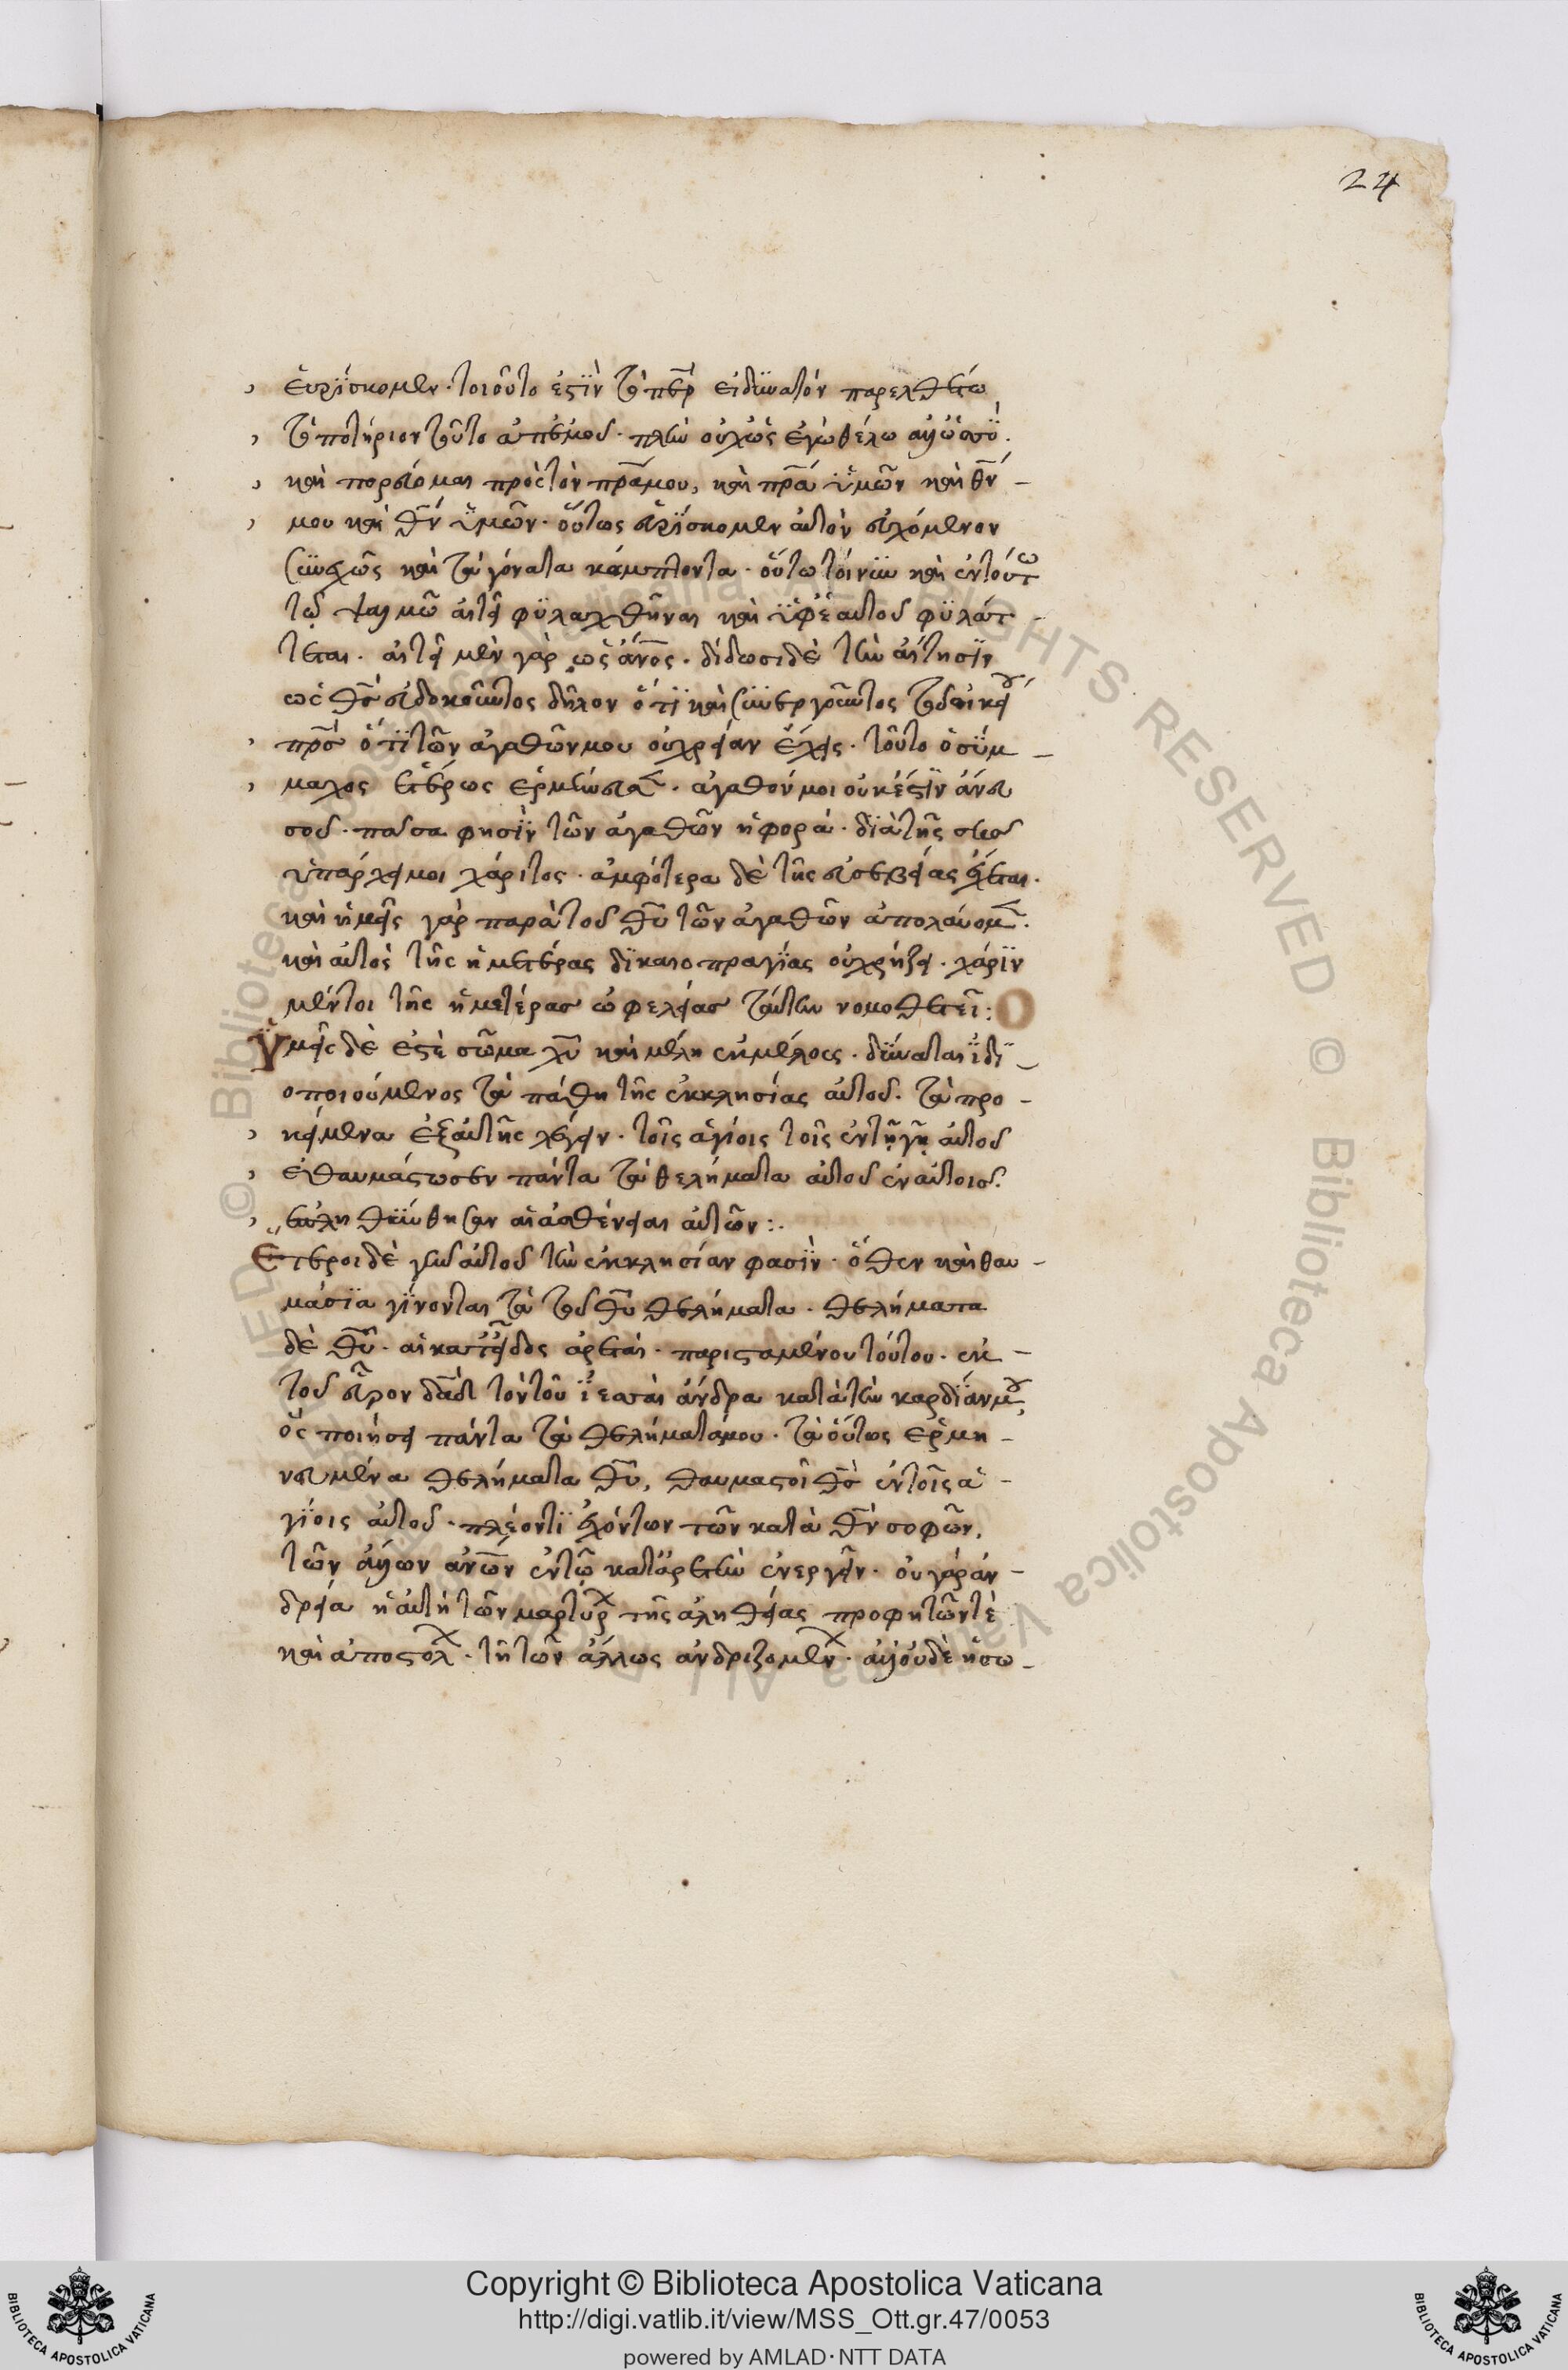 24
εὑρίσκομεν· τοιοῦτο ἐστὶν τὸ περ εἰ δυνατόν παρελθέτω
τὸ ποτήριον τοῦτο ἀπ' ἐμοῦ· πλὴν οὐχ ὡς ἐγὼ θέλω ἀλλ' ὡς σύ.
καὶ πορεύομαι πρὸς τὸν πρᾶ μου, καὶ πρᾶ ὑμῶν καὶ θν
μου καὶ θν ὑμῶν· οὕτως εὑρίσκομεν αὐτὸν εὐχόμενον
συνεχῶς καὶ τὰ γόνατα κάμπτοντα· οὕτω τοίνυν καὶ ἐν τούτω
τῷ ψαλμῶ αἰτεῖ φυλαχθῆναι καὶ ὑφ' ἑαυτοῦ φυλάτ-
τεται. αἰτεῖ μὲν γὰρ ὡς ἄνος· δίδωσι δὲ τὴν αἴτησιν
ὡς θς εὐδοκοῦντος δῆλον ὅτι καὶ συνεργοῦντος τοῦ οἰκείου
πρς ὅτι τῶν ἀγαθῶν μου οὐ χρείαν ἔχεις· τοῦτο ὁ σύμ-
μαχος ἑτέρως ἑρμήνευσε· ἀγαθόν μοι οὐκ ἔστιν ἄνευ
σοῦ· πᾶσα φησὶν τῶν ἀγαθῶν ἡ φορά· διὰ τῆς σῆς
ὑπάρχει μοι χάριτος· ἀμφότερα δὲ τῆς εὐσεβείας ἔχεται.
καὶ ἡμεῖς γὰρ παρὰ τοῦ θυ τῶν ἀγαθῶν ἀπολαύομεν.
καὶ αὐτὸς τῆς ἡμετέρας δικαιοπραγίας οὐ χρήζει· χάριν
μέντοι τῆς ἡμετέρας ὠφελείας ταύτην νομοθετεῖ:
Ὑμεῖς δὲ ἐστὲ σῶμα χυ καὶ μέλη ἐκ μέλους· δύναται ἰδι-
οποιούμενος τὰ πάθη τῆς ἐκκλησίας αὐτοῦ. τὰ προ-
κείμενα ἐξ αὐτῆς λέγειν· τοῖς ἁγίοις τοῖς ἐν τῇ γῇ αὐτοῦ
ἐθαυμάστωσεν πάντα τὰ θελήματα αὐτοῦ ἐν αὐτοῖς.
ἐπληθύνθησαν αἱ ἀσθένειαι αὐτῶν:.
Ἕτεροι δὲ γῆν αὐτοῦ τὴν ἐκκλησίαν φασὶν· ὅθεν καὶ θαυ-
μάσια γίνονται τὰ τοῦ θυ θελήματα· θελήματα
δὲ θυ· αἱ κατ' εἶδος ἀρεταί· παρισταμένου τούτου· ἐκ
τοῦ εὗρον δαδ τὸν τοῦ ἰεσσαὶ ἄνδρα κατὰ τὴν καρδίαν μου,
ὃς ποιήσει πάντα τὰ θελήματά μου· τὰ οὕτως ἑρμη-
νευμένα θελήματα θυ, θαυμαστοῖ θς ἐν τοῖς ἁ-
γίοις αὐτοῦ· πλέον τι ἐχόντων τῶν κατὰ θν σοφῶν,
τῶν ἄλλων ανων ἐν τῶ κατ' ἀρετὴν ἐνεργεῖν· οὐ γὰρ ἀν-
δρεία ἡ αὐτὴ τῶν μαρτύρων τῆς ἀληθείας προφητῶν τὲ
καὶ ἀποστόλων· τῇ τῶν ἄλλως ἀνδριζομένων· ἀλλ' οὐδὲ ἡ σω-
Copyright © Biblioteca Apostolica Vaticana
http://digi.vatlib.it/view/MSS_Ott.gr.47/0053
powered by AMLAD·NTT DATA